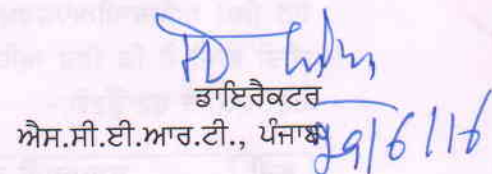 ਡਾਇਰੈਕਟਰ
ਐਸ.ਸੀ.ਈ.ਆਰ.ਟੀ., ਪੰਜਾਬ
29/6/16